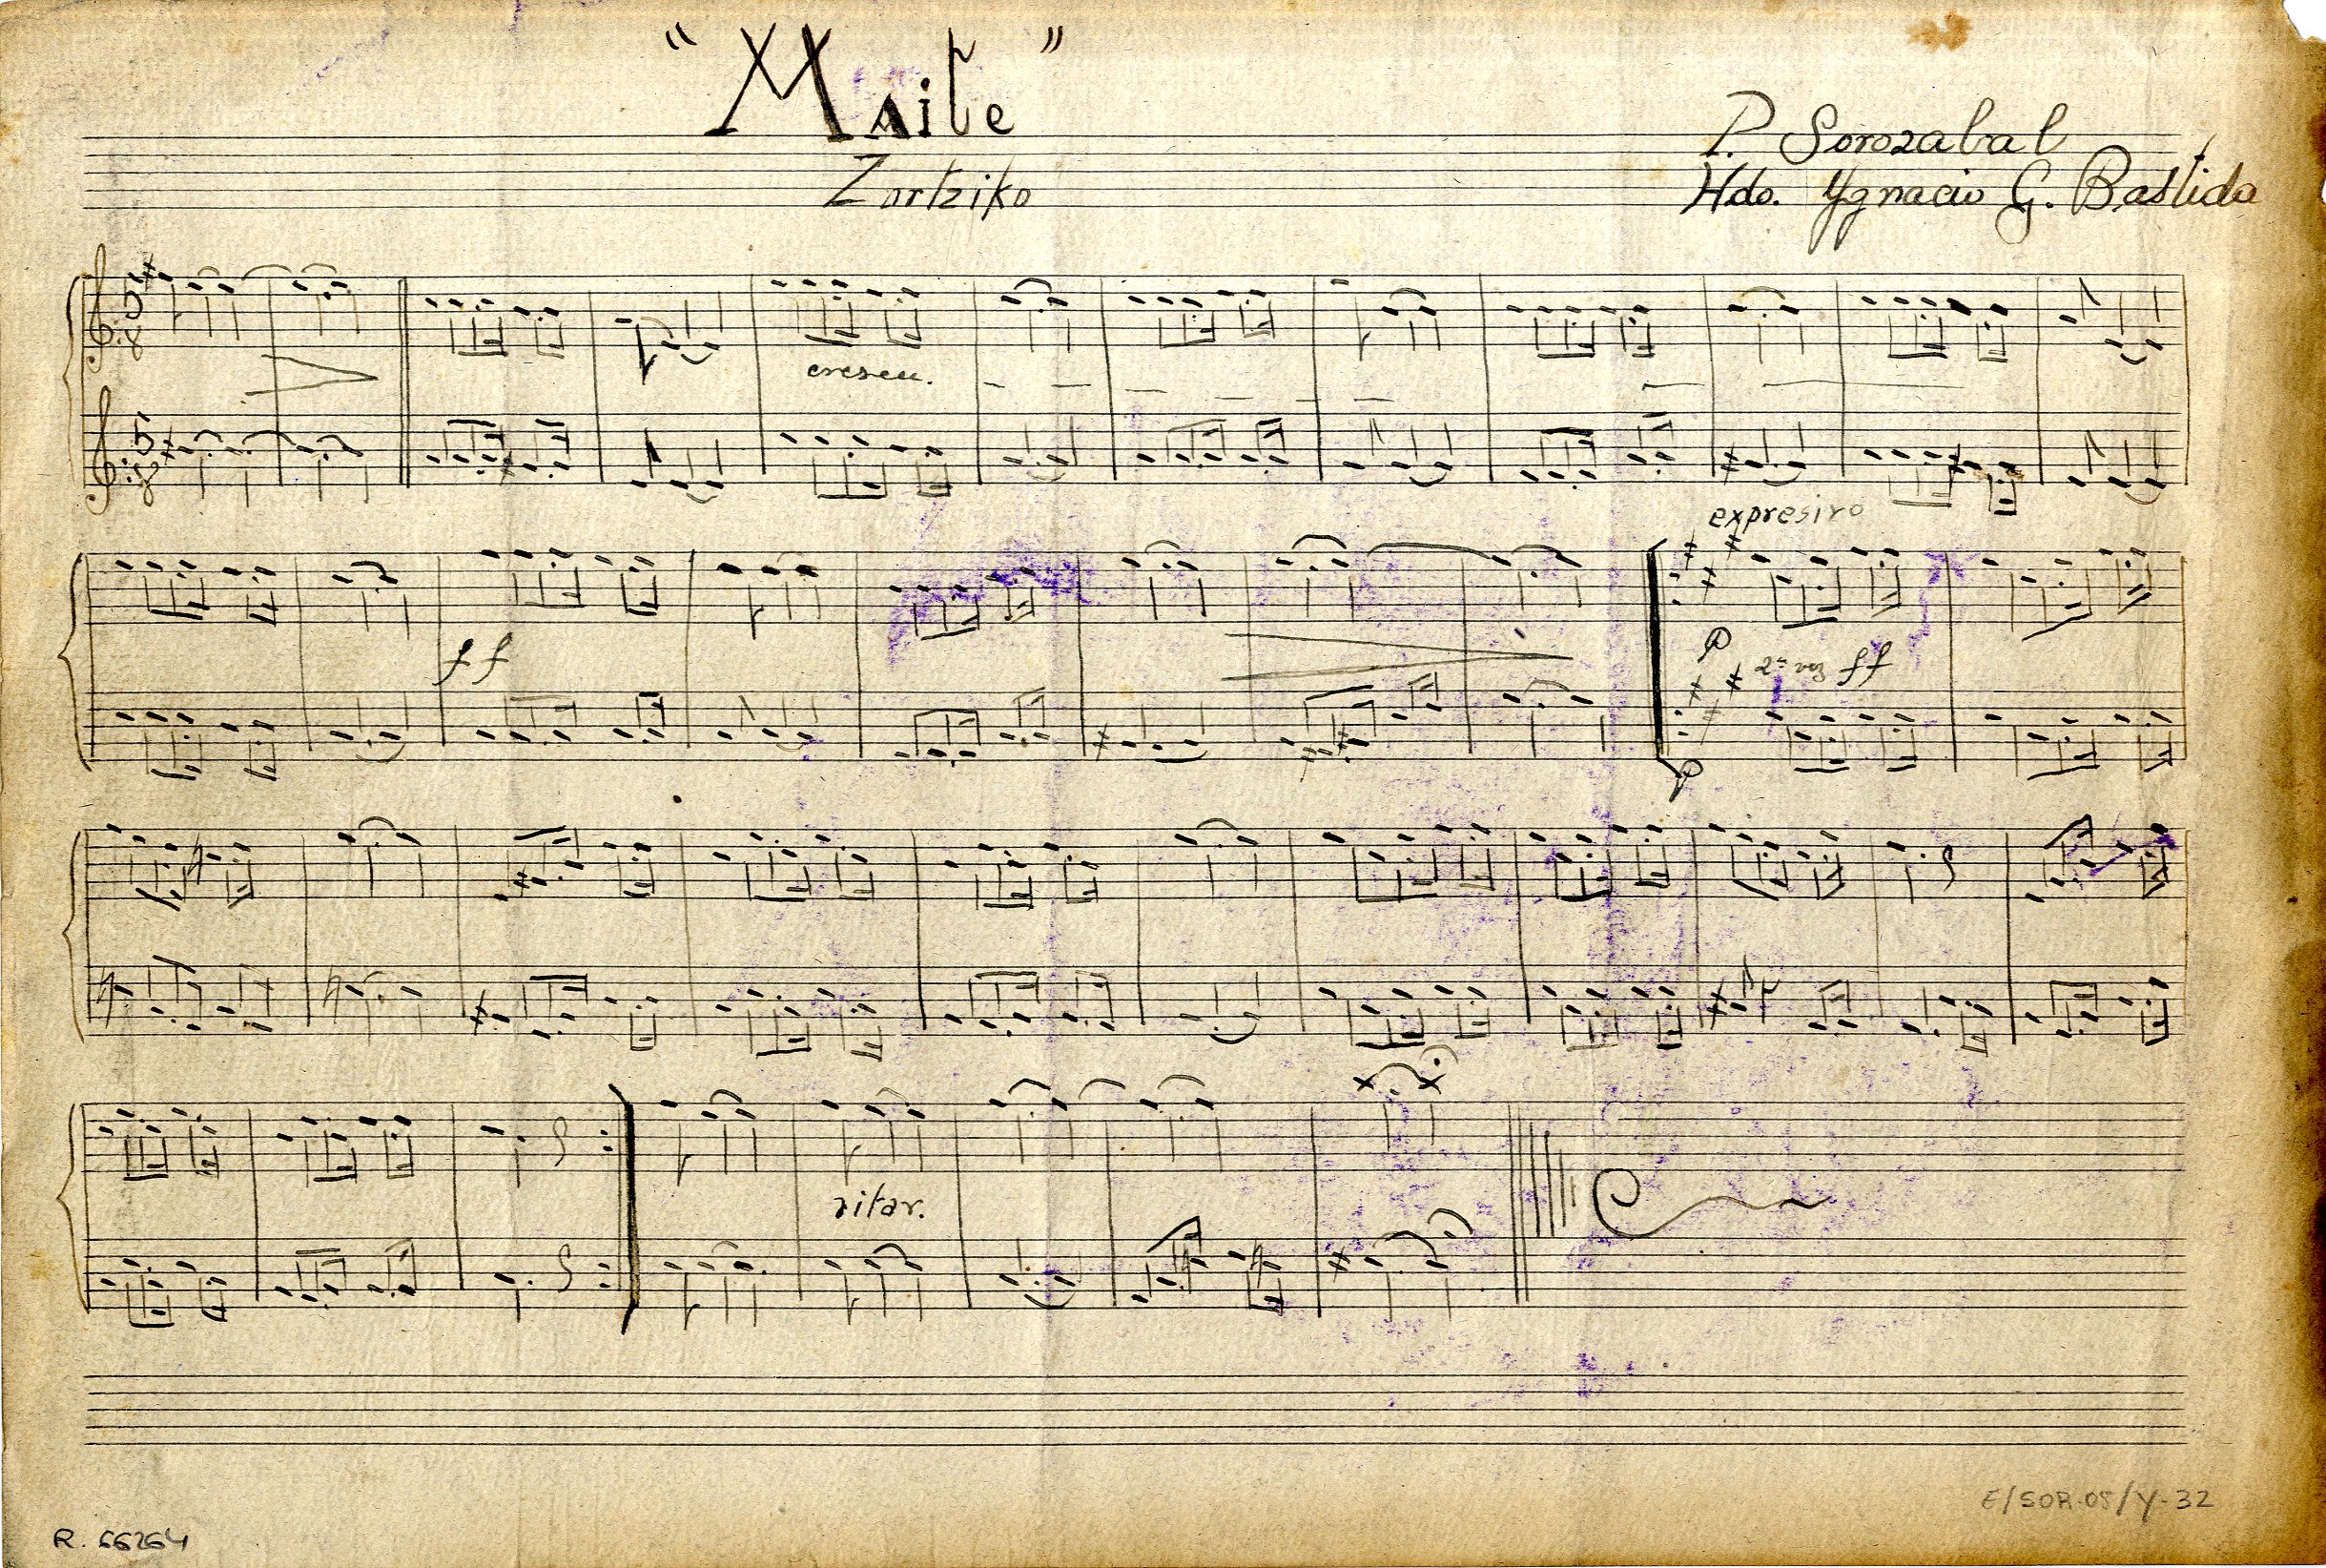 "Maite"
Zortziko
P. Sorozabal
Hdo. Ygnacio G. Bastida
5
8
crescen.
5
8
expresivo
ff
p
2ª vez ff
p
ritar.
E/SOR-05/Y-32
R. 66264